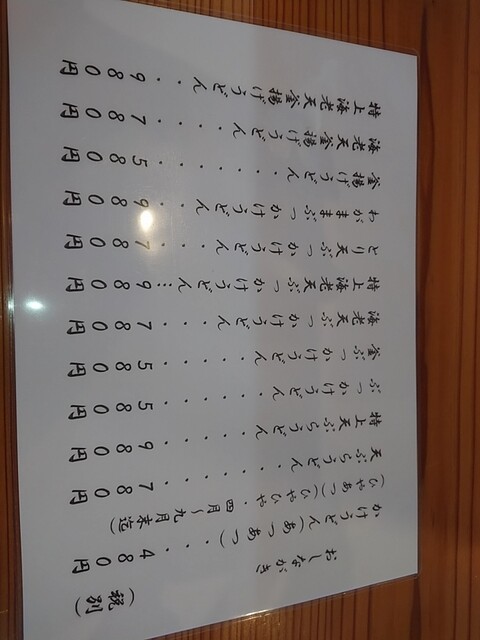 おしながき（税別）
かけうどん（あつあつ）・・・・480円
（ひやあつ）（ひやひや・四月〜九月末迄）
天ぷらうどん・・・・・・780円
特上天ぷらうどん・・・・・980円
ぶっかけうどん・・・・・580円
釜ぶっかけうどん・・・・・580円
海老天ぶっかけうどん・・・・780円
特上海老天ぶっかけうどん…980円
とり天ぶっかけうどん・・・・780円
わがままぶっかけうどん・・・980円
釜揚げうどん・・・・・・・580円
海老天釜揚げうどん・・・・・780円
特上海老天釜揚げうどん・・・980円